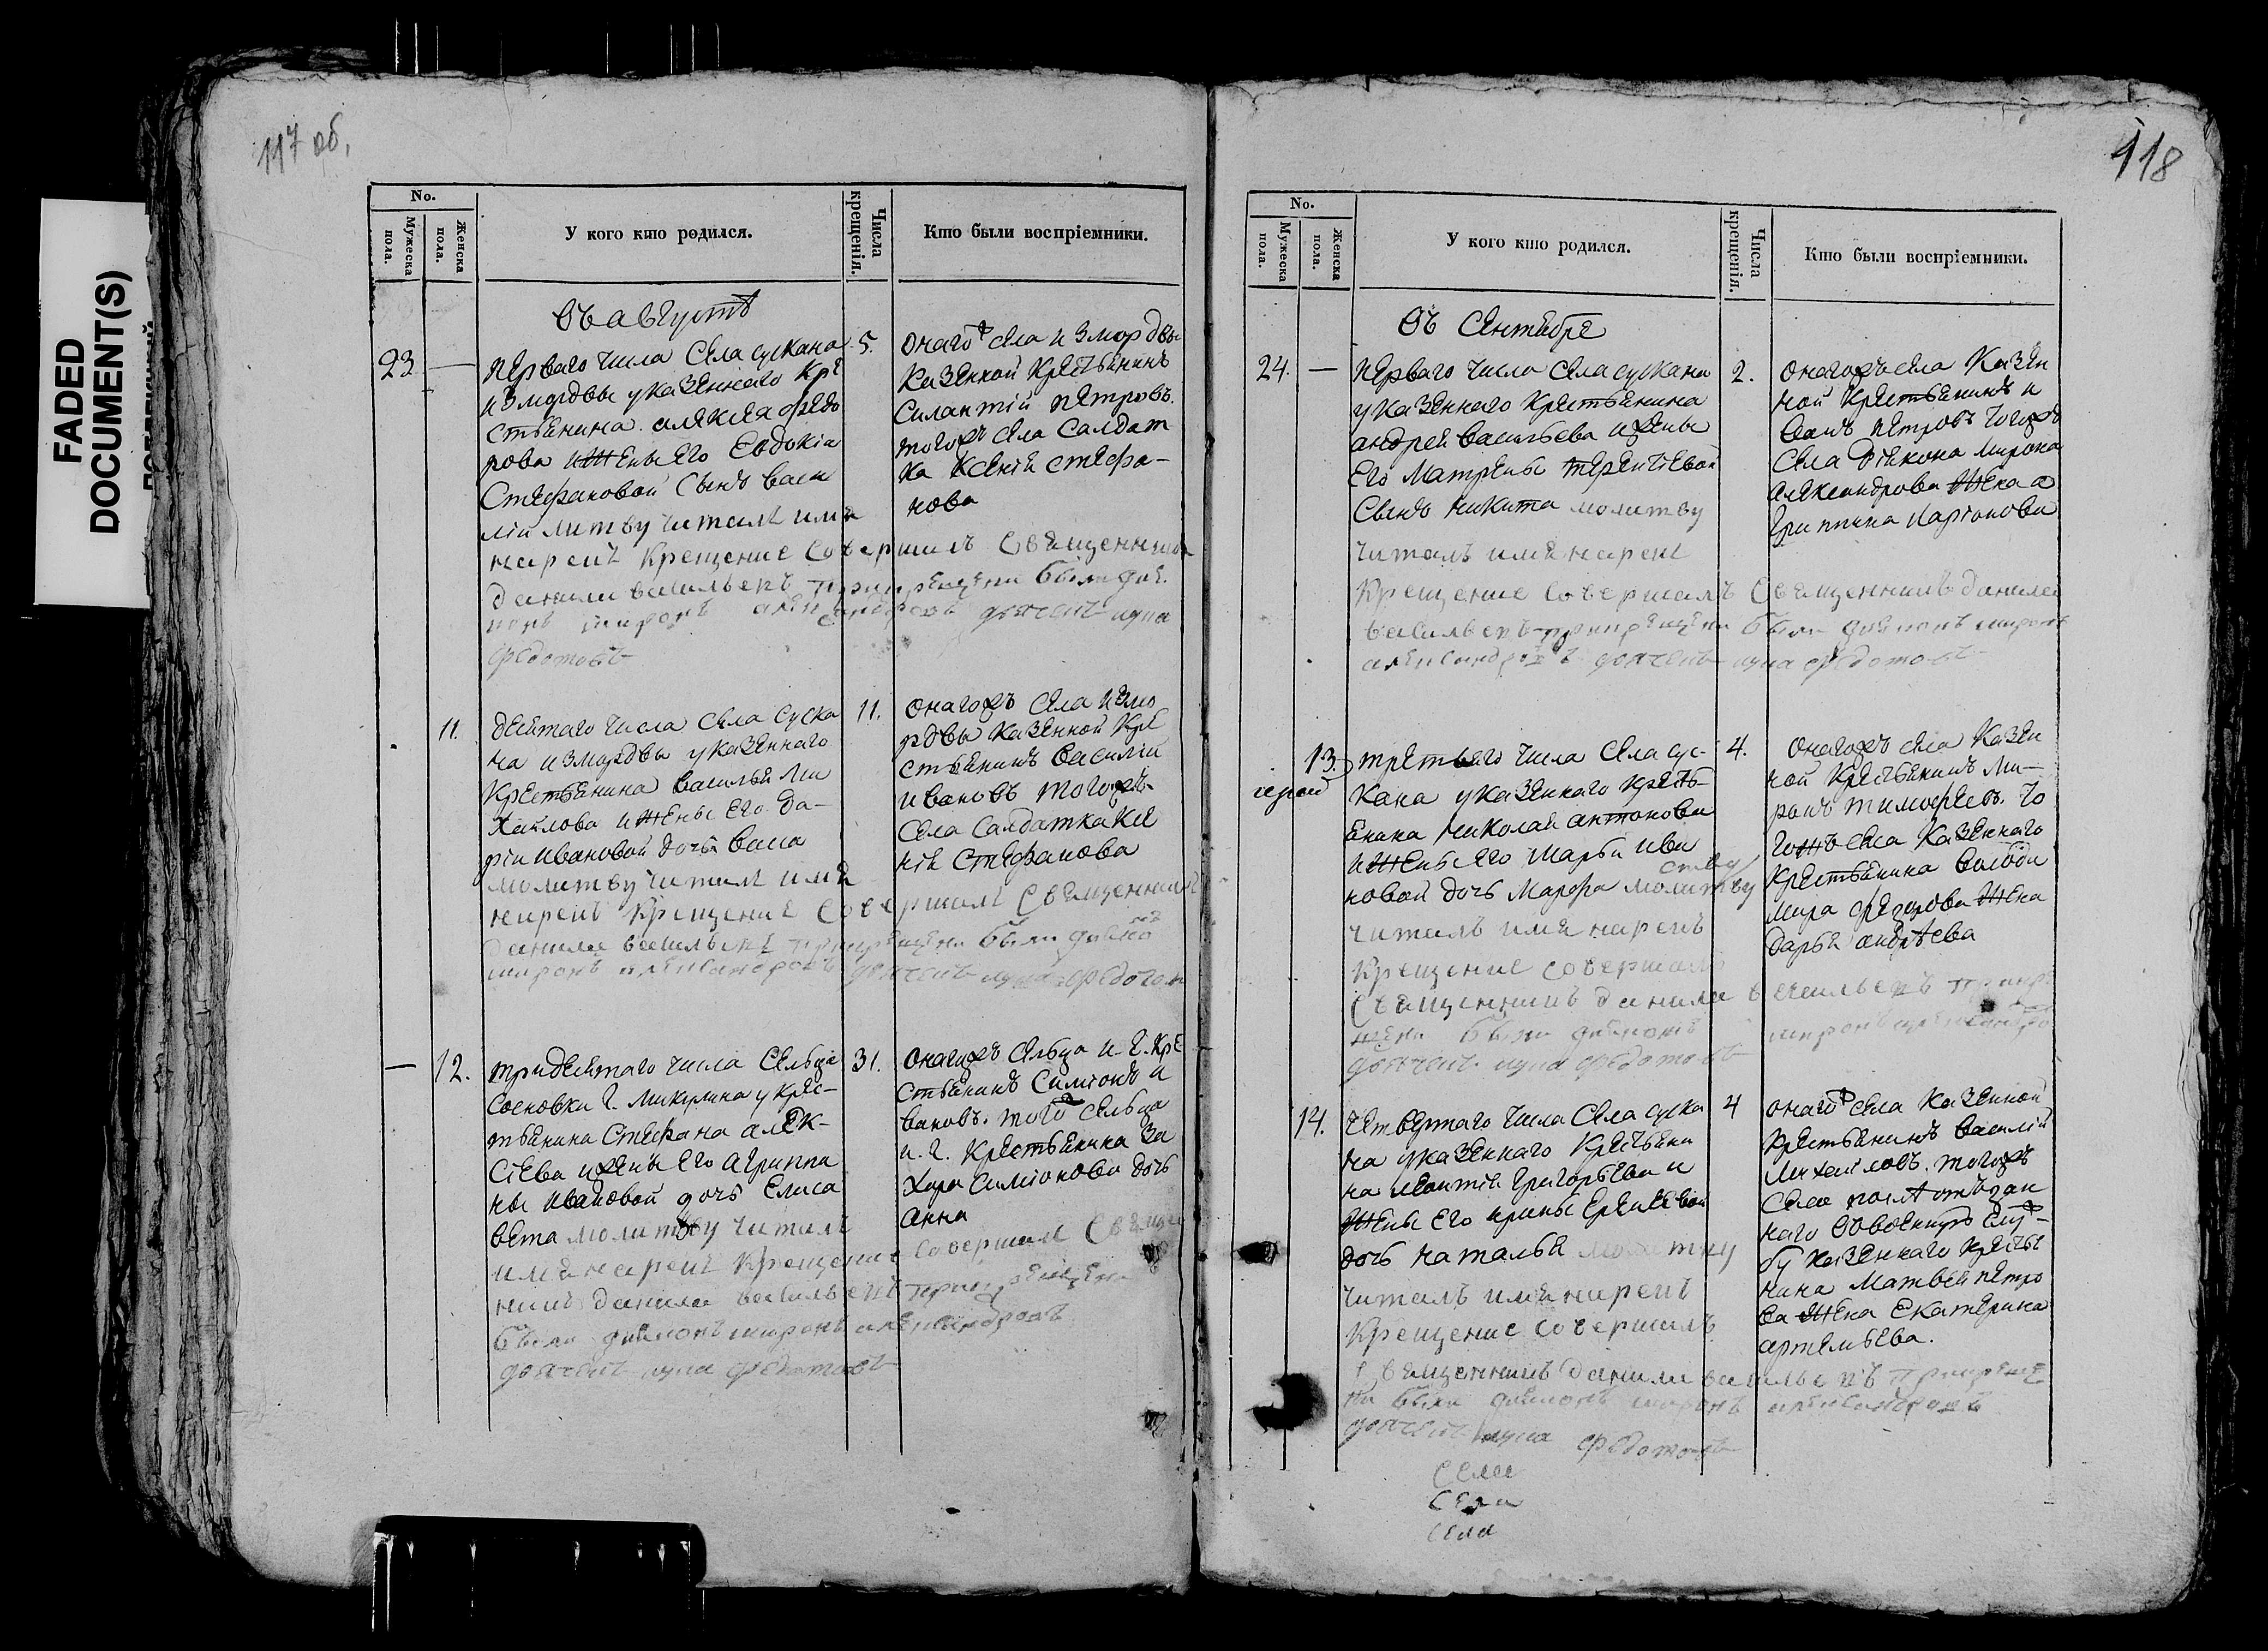 FADED
DOCUMENT(S)
117 об.
No.
Мужеска пола.
Женска пола.
У кого кто родился.
Числа крещенія.
Кто были воспріемники.
Въ августѣ
23 —
перваго числа села сускана
измордвы указеннаго кре
стьянина алексея федо
рова ижены его евдокіи
Стефановой сынъ васи
лій литву читалъ имя
нарекъ крещение совершилъ священникъ
данила васильевъ прикрещени были дия
конъ миронъ александровъ дьячекъ лука
федотовъ
5.
онагожъ села измордвы
казенной крестьянинъ
силантій петровъ.
тогожъ села салдат
ка ксенія стефа-
нова
11.
десятаго числа села суска
на измордвы указеннаго
крестьянина василья ми
хайлова ижены его да-
ріи ивановой дочь васа
молитву читалъ имя
нарекъ крещение совершилъ священникъ
данила васильевъ прикрещени были диякон
миронъ александровъ дьячекъ лука федотов
11.
онагожъ села измо
рдвы казенной кре
стьянинъ василій
ивановъ тогожъ
села салдатка ксе
нія стефанова
— 12.
тридесятаго числа сельца
сосновки г. микулина украс-
тьянина стефана алек-
сіева ижены его агрипи
ны ивановой дочь елиса
вета молитву читалъ
имя нарекъ крещение совершилъ священ
никъ данила васильевъ прикрещени
были диаконъ миронъ александровъ
дьячекъ лука федотовъ
31.
онагожъ сельца и. г. кре
стьянинъ симіонъ и
вановъ. того сельца
и. г. крестьянина за
хара симіонова дочь
анна
118
No.
Мужеска пола.
Женска пола.
У кого кто родился.
Числа крещенія.
Кто были воспріемники.
Въ Сентябре
24. —
перваго числа села сускана
указеннаго крестьянина
андрея васильева ижены
его матрены терентіевой
сынъ никита молитву
читалъ имя нарекъ
крещение совершилъ священникъ данила
васильевъ прикрещени были диаконъ миронъ
александровъ дьячекъ лука федотовъ
2.
онагожъ села казен
ной крестьянинъ и
ванъ петровъ тогожъ
села діякона мирона
александрова жена а
грипина ларіонова
13.
третьего числа села сус-
кана указеннаго кресть-
янина николая антонова
ижены его марьи ива
новой дочь марфа молитву
читалъ имя нарекъ
крещение совершилъ
священникъ данила васильевъ прикре
щени были диаконъ миронъ александро
дьячекъ лука федотовъ
4.
онагожъ села казен
ной крестьянинъ ми-
ронъ тимофеевъ. то
гожъ села казеннаго
крестьянина володи
мира федорова жена
дарья андреева
14.
четвертаго числа села суска
на указеннаго крестьяни
на леонтія григорьева и
жены его ирины
дочь наталья молитву
читалъ имя нарекъ
крещение совершилъ
священникъ данила васильевъ прикреще
ни были диаконъ миронъ александровъ
дьячекъ лука федотовъ
4
онагожъ села казенной
крестьянинъ василій
михайловъ. тогожъ
села
наго ввоенную служ-
бу казеннаго кресть
янина матвея петро
ва жена екатерина
артемьева.
села
села
села